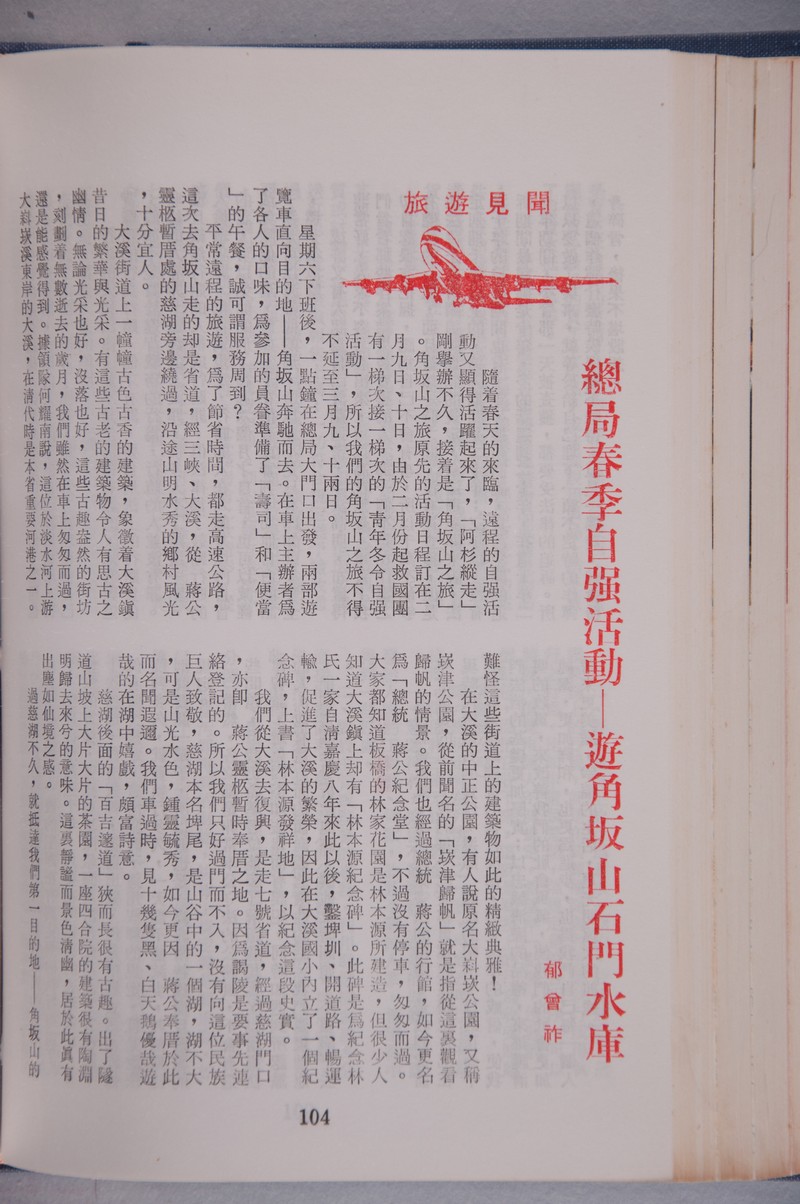 旅遊見聞
總局春季自强活動—遊角坂山石門水庫
郁曾祚
隨着春天的來臨，遠程的自强活
動又顯得活躍起來了，「阿杉縱走」
剛擧辦不久，接着是「角坂山之旅」
。角坂山之旅原先的活動日程訂在二
月九日、十日，由於二月份起救國團
有一梯次接一梯次的「靑年冬令自强
活動」，所以我們的角坂山之旅不得
不延至三月九、十兩日。
星期六下班後，一點鐘在總局大門口出發，兩部遊
覽車直向目的地——角坂山奔馳而去。在車上主辦者爲
了各人的口味，爲參加的員眷準備了「壽司」和「便當
」的午餐，誠可謂服務周到？
平常遠程的旅遊，爲了節省時間，都走高速公路，
這次去角坂山走的却是省道，經三峽、大溪，從　蔣公
靈柩暫厝處的慈湖旁邊繞過，沿途山明水秀的鄉村風光
，十分宜人。
大溪街道上一幢幢古色古香的建築，象徵着大溪鎭
昔日的繁華與光采。有這些古老的建築物令人有思古之
幽情。無論光采也好，沒落也好，這些古趣盎然的街坊
，刻劃着無數逝去的歲月，我們雖然在車上匆匆而過，
還是能感覺得到。據領隊何耀南說，這位於淡水河上游
大嵙崁溪東岸的大溪，在淸代時是本省重要河港之一。
難怪這些街道上的建築物如此的精緻典雅！
在大溪的中正公園，有人說原名大嵙崁公園，又稱
崁津公園，從前聞名的「崁津歸帆」就是指從這裏觀看
歸帆的情景。我們也經過總統　蔣公的行館，如今更名
爲「總統　蔣公紀念堂」，不過沒有停車，匆匆而過。
大家都知道板橋的林家花園是林本源所建造，但很少人
知道大溪鎭上却有「林本源紀念碑」。此碑是爲紀念林
民一家自淸嘉慶八年來此以後，鑿埤圳、開道路、暢運
輸，促進了大溪的繁榮，因此在大溪國小內立了一個紀
念碑，上書「林本源發祥地」，以紀念這段史實。
我們從大溪去復興，是走七號省道，經過慈湖門口
，亦卽　蔣公靈柩暫時奉厝之地。因爲謁陵是要事先連
絡登記的。所以我們只好過門而不入，沒有向這位民族
巨人致敬，慈湖本名埤尾，是山谷中的一個湖，湖不大
，可是山光水色，鍾靈毓秀，如今更因　蔣公奉厝於此
而名聞遐邇。我們車過時，見十幾隻黑、白天鵝優哉遊
哉的在湖中嬉戲，頗富詩意。
慈湖後面的「百吉邃道」狹而長很有古趣。出了隧
道山坡上大片大片的茶園，一座四合院的建築很有陶淵
明歸去來兮的意味。這裏靜謐而景色淸幽，居於此眞有
出塵如仙境之感。
過慈湖不久，就抵達我們第一目的地——角坂山的
104